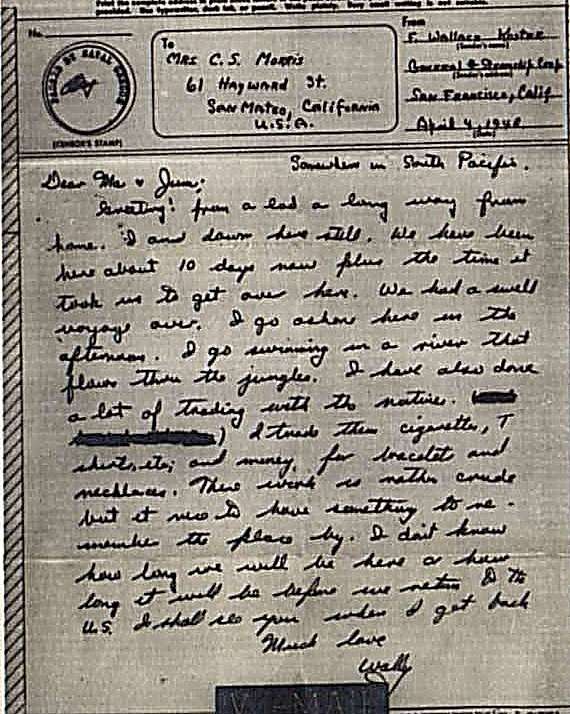 Print the complete address in plain
provided. Use typewriter, dark ink, or pencil. Write plainly. Very small writing is not suitable.
No.
PASSED BY NAVAL CENSOR
(CENSOR'S STAMP)
To
MRS C. S. Morris
61 Hayward St.
San Mateo, California
U.S.A.
From
F. Wallace
(Sender's name)
General Steamship Corp
(Sender's address)
San Francisco, Calif
April 4, 194
(Date)
Somewhere in South Pacific.
Dear Ma &
Greeting! from a lad a long way from
home. I and down here still. We have been
here about 10 days now plus the time it
took us to get over here. We had a swell
voyage over. I go ashore here in the
afternoon. I go swimming in a river that
flows thru the jungles. I have also done
a lot of trading with the natives.
) I trade them cigarettes, T
shirts, etc; and money, for bracelet and
necklaces. There work is rather crude
but it nice to have something to re-
member the place by. I don't know
how long we will be here or how
long it will be before we return to the
U.S. I shall see you when I get back
Much love
Wally
V-MAIL